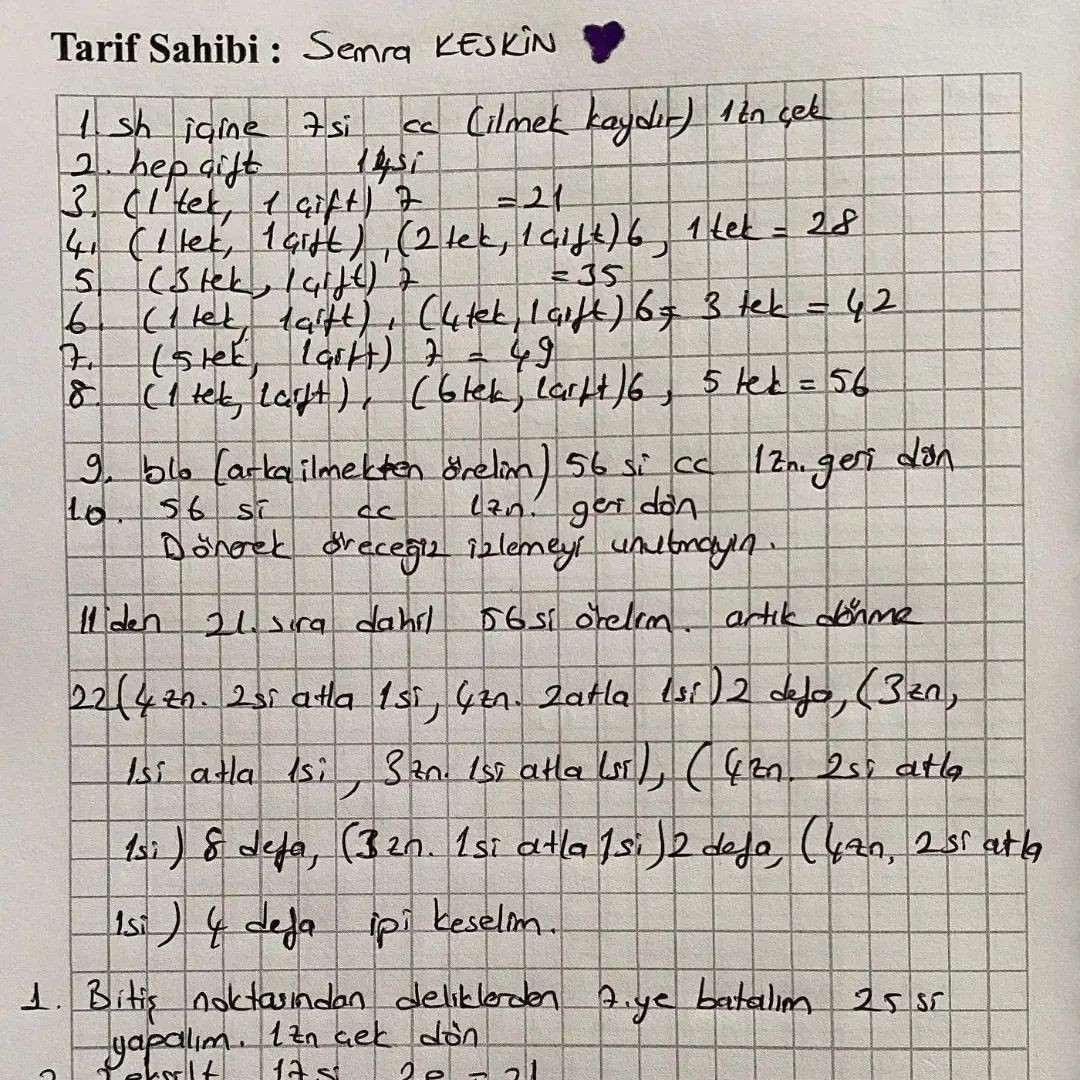 Tarif Sahibi : Semra KESKİN
1. sh içine 7si cc (ilmek kaydır) 1zn çek
2. hep çift 14si
3. (1 tek, 1 çift) 7 =21
4. (1 tek, 1 çift), (2 tek, 1 çift)6, 1 tek = 28
5. (3 tek, 1 çift) 7 =35
6. (1 tek, 1 çift), (4 tek, 1 çift)6, 3 tek = 42
7. (5 tek, 1 çift) 7 = 49
8. (1 tek, 1 çift), (6 tek, 1 çift)6, 5 tek = 56
9. blo (arka ilmekten örelim) 56 si cc 1zn. geri dön
10. 56 si cc 1zn. geri dön
Dönerek öreceğiz izlemeyi unutmayın.
11'den 21. sıra dahil 56si örelim. artık dönme
22(4zn. 2si atla 1si, 4zn. 2atla 1si)2 defa, (3zn,
1si atla 1si, 3zn. 1si atla 1si), (4zn. 2si atla
1si) 8 defa, (3zn. 1si atla 1si)2 defa, (4zn, 2si atla
1si) 4 defa ipi keselim.
1. Bitiş noktasından deliklerden 7.ye batalım 25 si
yapalım. 1zn çek dön